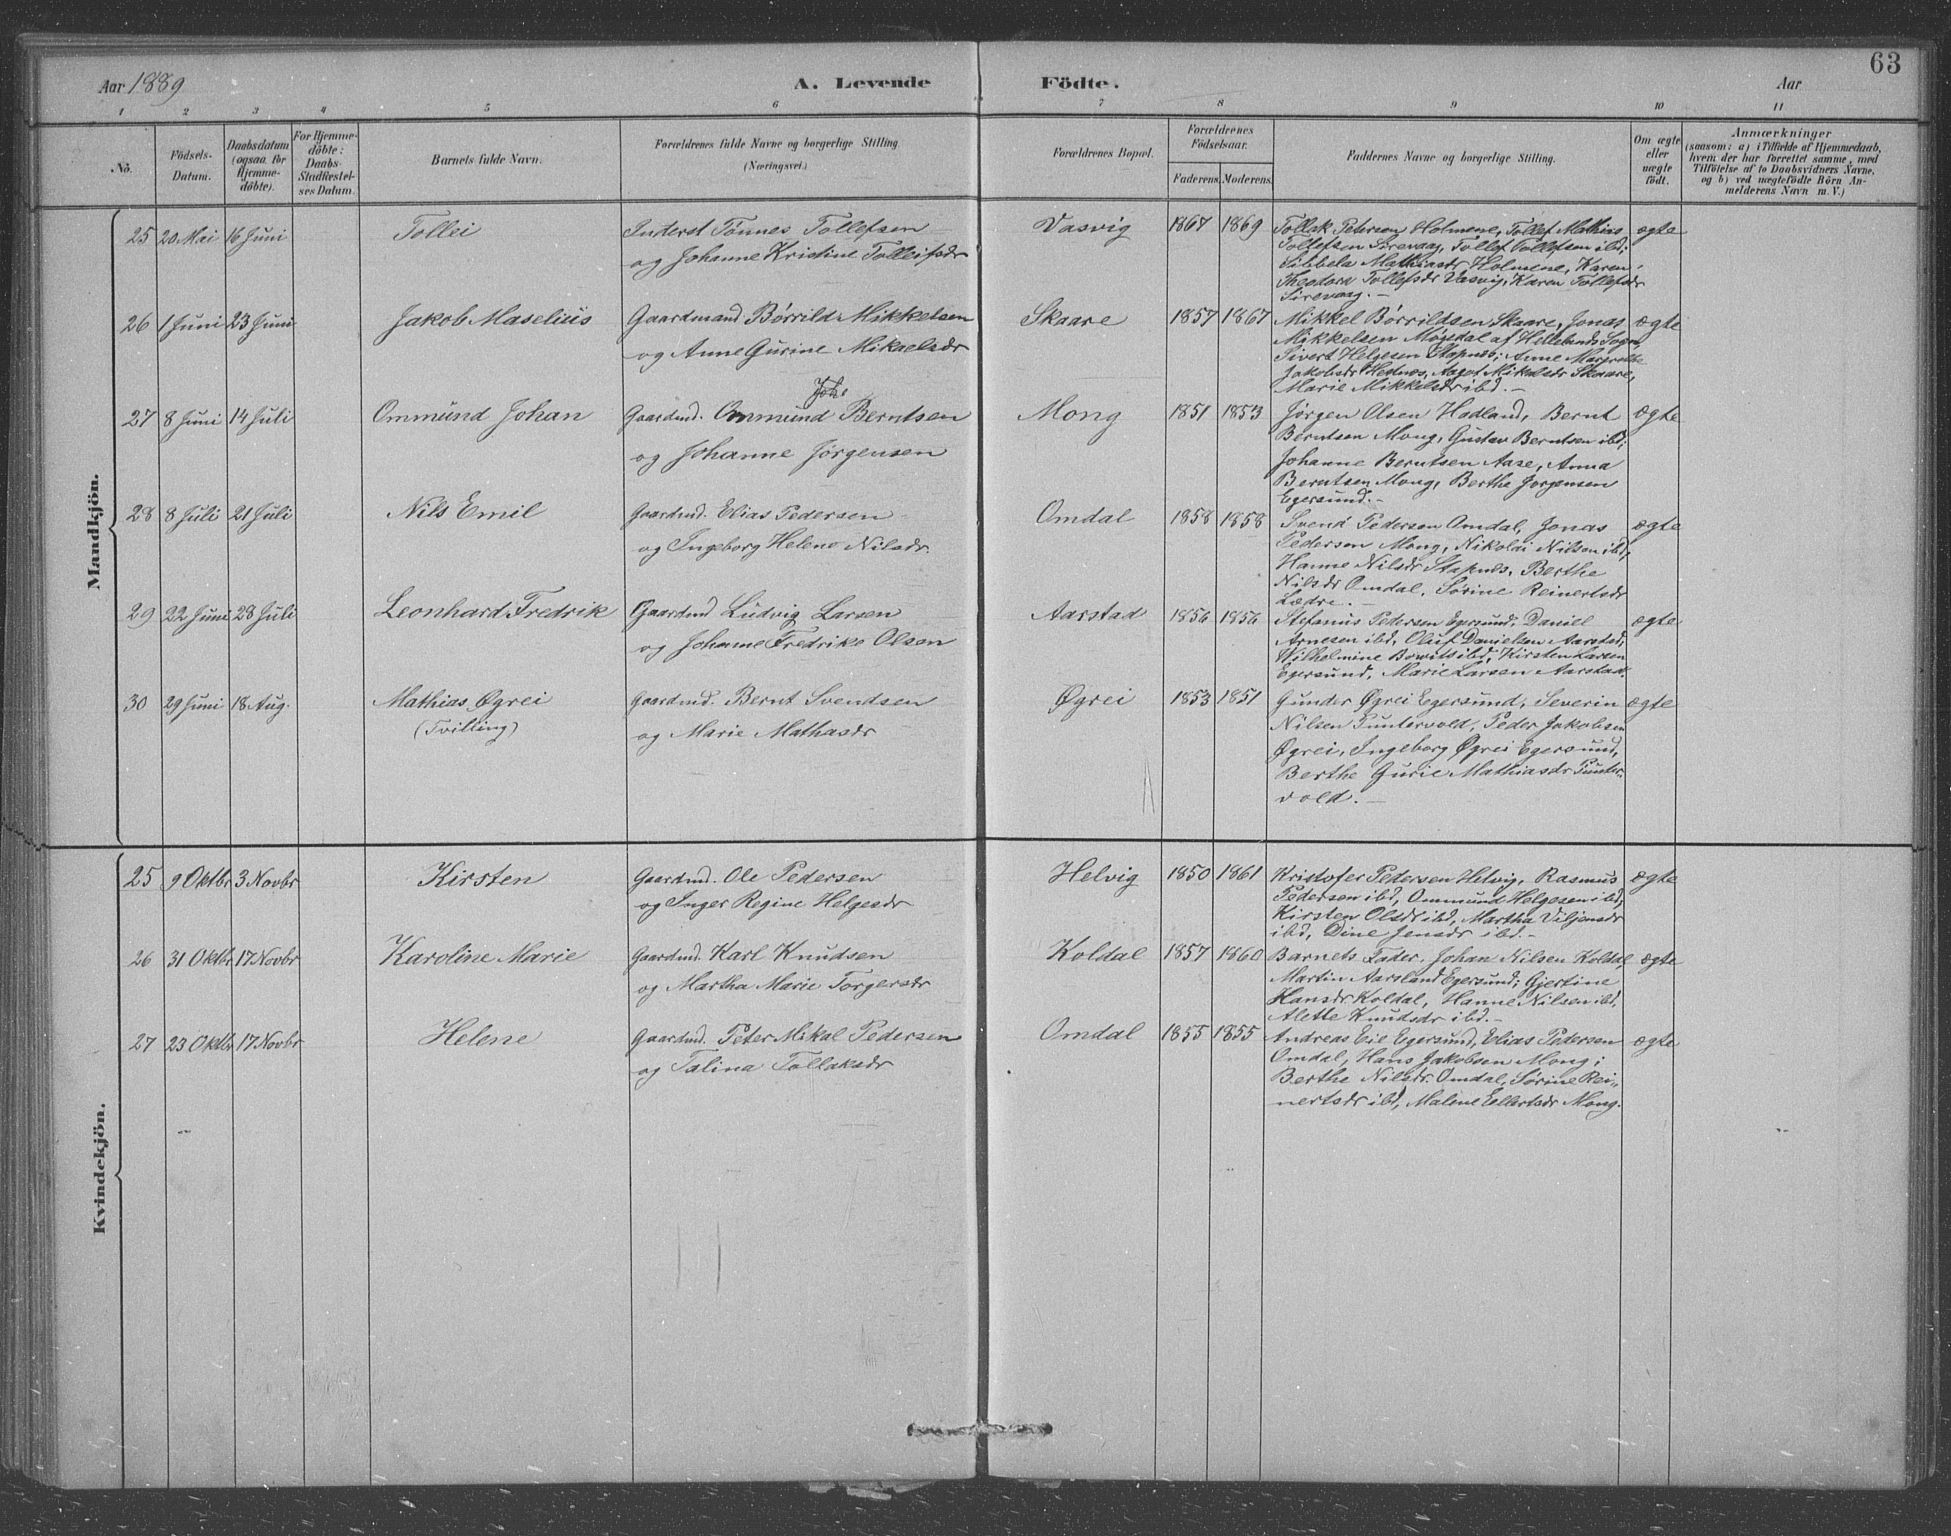 63
Aar 1889 A. Levende Födte. Aar
1 2 3 4 5 6 7 8 9 10 11
No. Födsels-Datum. Daabsdatum (ogsaa for Hjemme-döbte). For Hjemme-döbte: Daabs-Stadfæstel-ses Datum. Barnets fulde Navn. Forældrenes fulde Navne og borgerlige Stilling (Næringsvei.) Forældrenes Bopæl. Forældrenes Födselsaar. Faderens. Moderens. Faddernes Navne og borgerlige Stilling. Om ægte eller uægte födt. Anmærkninger (saasom: a) i Tilfælde af Hjemmedaab, hvem der har forrettet samme, med Tilföielse af to Daabsvidners Navne, og b) ved uægtefödte Börn An-melderens Navn m. V.)
Mandkjön.
25 20 Mai 16 Juni Tollei Inderst Tönnes Tollefsen Vasvig 1867 1869 Tollak Petersen Holmene, Tollef Mathias ægte
og Johanne Kristine Tolleifsdr Tollefsen Sirevaag, Tollef Tollefsen ibd;
Sibbela Mathiasdr Holmene, Karen
Theodora Tollefsdr Vasvig, Karen Tollefsdr
Sirevaag. –
26 1 Juni 23 Juni Jakob Maselius Gaardmand Börrild Mikkelsen Skaare 1857 1867 Mikkel Börrildsen Skaare, Jonas ægte
og Anne Gurine Mikaelsdr Mikkelsen Møgedal af Hellelands Sogn,
Sivert Helgesen Stapnes; Anne Margrethe
Jakobsdr Hednes, Aagot Mikalsdr Skaare,
Marie Mikkelsdr ibd. –
27 8 Juni 14 Juli Ommund Johan Gaardmd. Ommund Berntsen Mong 1851 1853 Jørgen Olsen Hadland, Bernt ægte
og Johanne Jørgensen Berntsen Mong, Gustav Berntsen ibd;
Johanne Berntsen Aase, Anna
Berntsen Mong, Berthe Jørgensen
Egersund. –
28 8 Juli 21 Juli Nils Emil Gaardmd. Elias Pedersen Omdal 1858 1858 Svend Pedersen Omdal, Jonas ægte
og Ingeborg Helene Nilsdr. Pedersen Mong, Nikolai Nilsen ibd;
Hanne Nilsdr Stapnes, Berthe
Nilsdr Omdal, Sørine Reinertsdr
Lædre. –
29 22 Juni 28 Juli Leonhard Fredrik Gaardmd Ludvig Larsen Aarstad 1856 1856 Stefanus Pedersen Egersund, Daniel ægte
og Johanne Fredrike Olsen Arnesen ibd, Oluf Danielsen Aarstad;
Wilhelmine ibd, Kirsten Larsen
Egersund, Marie Larsen Aarstad.
30 29 Juni 18 Aug. Mathias Øgrei Gaardmd. Bernt Svendsen Øgrei 1853 1851 Gunder Øgrei Egersund, Severin ægte
(Tvilling) og Marie Mathasdr Nilsen Puntervold, Peder Jakobsen
Øgrei, Ingeborg Øgrei Egersund,
Berthe Gurie Mathiasdr Punter-
vold. –
Kvindekjön.
25 9 Oktbr 3 Novbr Kirsten Gaardmd. Ole Pedersen Helvig 1850 1861 Kristofer Pedersen Helvig, Rasmus ægte
og Inger Regine Helgesdr Pedersen ibd, Ommund Helgesen ibd;
Kirsten Olsdr ibd, Martha Viljensdr
ibd, Dine Jensdr ibd. –
26 31 Oktbr 17 Novbr Karoline Marie Gaardmd. Karl Knudsen Koldal 1857 1860 Barnets Fader, Johan Nilsen Koldal, ægte
og Martha Marie Torgersdr Martin Aarsland Egersund; Gjertine
Hansdr. Koldal, Hanne Nilsen ibd,
Alette Knudsdr ibd. –
27 23 Oktbr 17 Novbr Helene Gaardmd. Peter Mikal Pedersen Omdal 1855 1855 Andreas Eie Egersund, Elias Pedersen ægte
og Talina Tollaksdr Omdal, Hans Jakobsen Mong;
Berthe Nilsdr. Omdal, Sørine Rei-
nertsdr ibd, Malene Eellertsdr Mong.